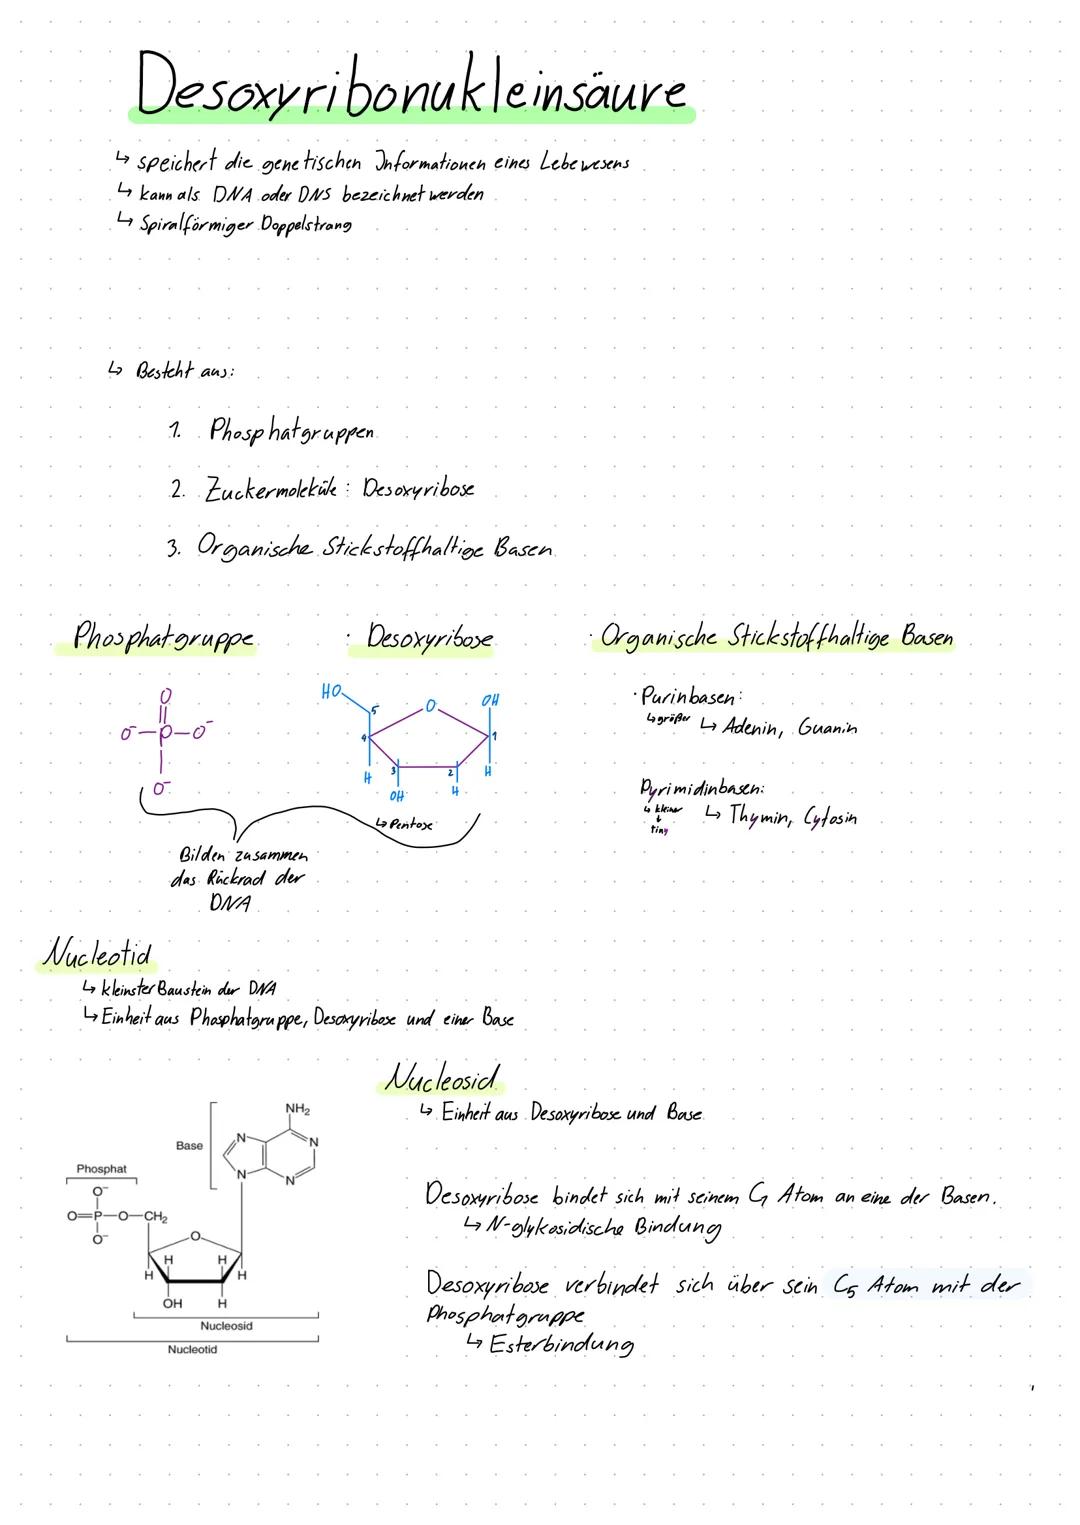 Desoxyribonukleinsäure
↳ speichert die genetischen Informationen eines Lebewesens
↳ kann als DNA oder DNS bezeichnet werden
↳ Spiralförmiger Doppelstrang
↳ Besteht aus:
1. Phosphatgruppen
2. Zuckermoleküle: Desoxyribose
3. Organische Stickstoffhaltige Basen
Phosphatgruppe
O
O⁻ P O⁻
O⁻
Bilden zusammen
das Rückrad der
DNA
Desoxyribose
HO
5 O OH
4 1
H 3 2 H
OH H
↳ Pentose
Organische Stickstoffhaltige Basen
· Purinbasen:
↳ größer ↳ Adenin, Guanin
Pyrimidinbasen:
↳ kleiner ↳ Thymin, Cytosin
↓
tiny
Nucleotid
↳ kleinster Baustein der DNA
↳ Einheit aus Phosphatgruppe, Desoxyribose und einer Base
NH₂
Base N N
N N
Phosphat
O⁻
O=P—O—CH₂
O⁻ O
H H
H H
OH H
Nucleosid
Nucleotid
Nucleosid
↳ Einheit aus Desoxyribose und Base
Desoxyribose bindet sich mit seinem C₁ Atom an eine der Basen.
↳ N-glykosidische Bindung
Desoxyribose verbindet sich über sein C₅ Atom mit der
Phosphatgruppe
↳ Esterbindung